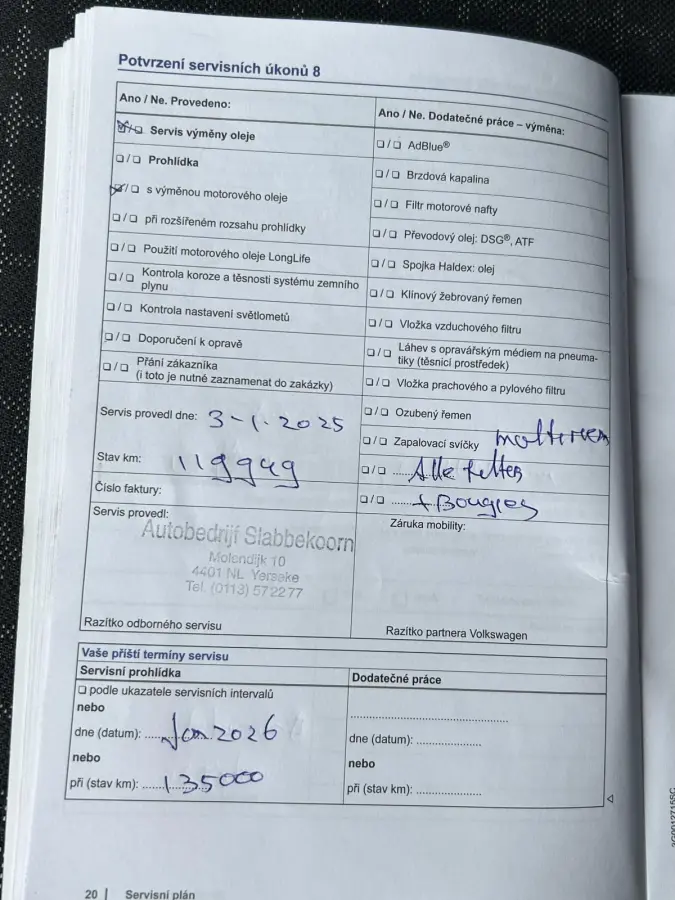 Potvrzení servisních úkonů 8
Ano / Ne. Provedeno:
❏ / ❏ Servis výměny oleje
❏ / ❏ Prohlídka
❏ / ❏ s výměnou motorového oleje
❏ / ❏ při rozšířeném rozsahu prohlídky
❏ / ❏ Použití motorového oleje LongLife
❏ / ❏ Kontrola koroze a těsnosti systému zemního
plynu
❏ / ❏ Kontrola nastavení světlometů
❏ / ❏ Doporučení k opravě
❏ / ❏ Přání zákazníka
(i toto je nutné zaznamenat do zakázky)
Servis provedl dne: 3-1-2025
Stav km: 119949
Číslo faktury:
Servis provedl:
Autobedrijf Slabbekoorn
Molendijk 10
4401 NL Yerseke
Tel. (0113) 572277
Razítko odborného servisu
Ano / Ne. Dodatečné práce – výměna:
❏ / ❏ AdBlue®
❏ / ❏ Brzdová kapalina
❏ / ❏ Filtr motorové nafty
❏ / ❏ Převodový olej: DSG®, ATF
❏ / ❏ Spojka Haldex: olej
❏ / ❏ Klínový žebrovaný řemen
❏ / ❏ Vložka vzduchového filtru
❏ / ❏ Láhev s opravářským médiem na pneuma-
tiky (těsnicí prostředek)
❏ / ❏ Vložka prachového a pylového filtru
❏ / ❏ Ozubený řemen
❏ / ❏ Zapalovací svíčky
❏ / ❏ Alle filters
❏ / ❏ + Bougies
Záruka mobility:
Razítko partnera Volkswagen
Vaše příští termíny servisu
Servisní prohlídka
❏ podle ukazatele servisních intervalů
nebo
dne (datum): Jan 2026
nebo
při (stav km): 135000
Dodatečné práce
dne (datum):
nebo
při (stav km):
20 | Servisní plán